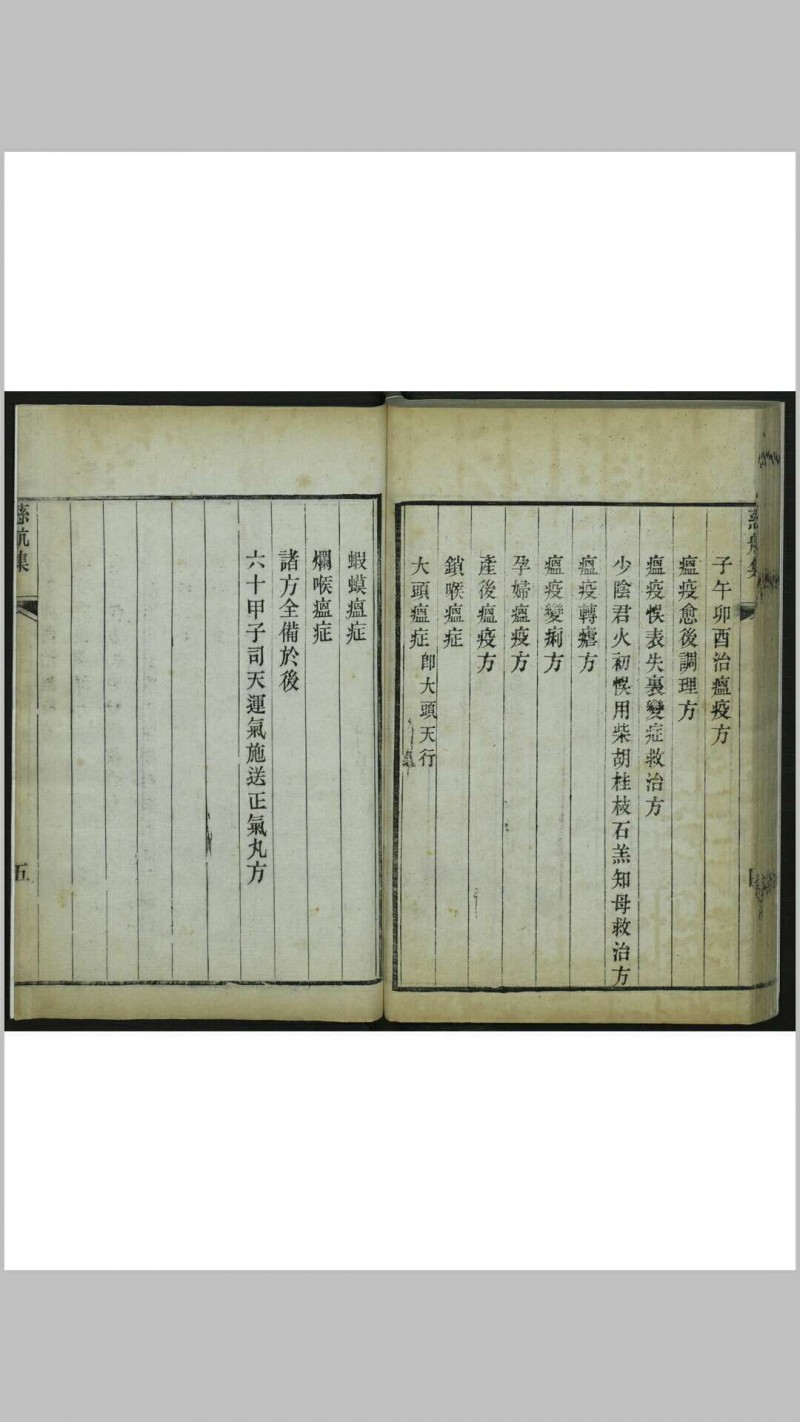 慈航集
子午卯酉治瘟疫方
瘟疫愈後調理方
瘟疫悞表失裏變症救治方
少陰君火初悞用柴胡桂枝石羔知母救治方
瘟疫轉瘧方
瘟疫變痢方
孕婦瘟疫方
產後瘟疫方
鎖喉瘟症
大頭瘟症 即大頭天行
蝦蟆瘟症
爛喉瘟症
諸方全備於後
六十甲子司天運氣施送正氣丸方
慈航集
五